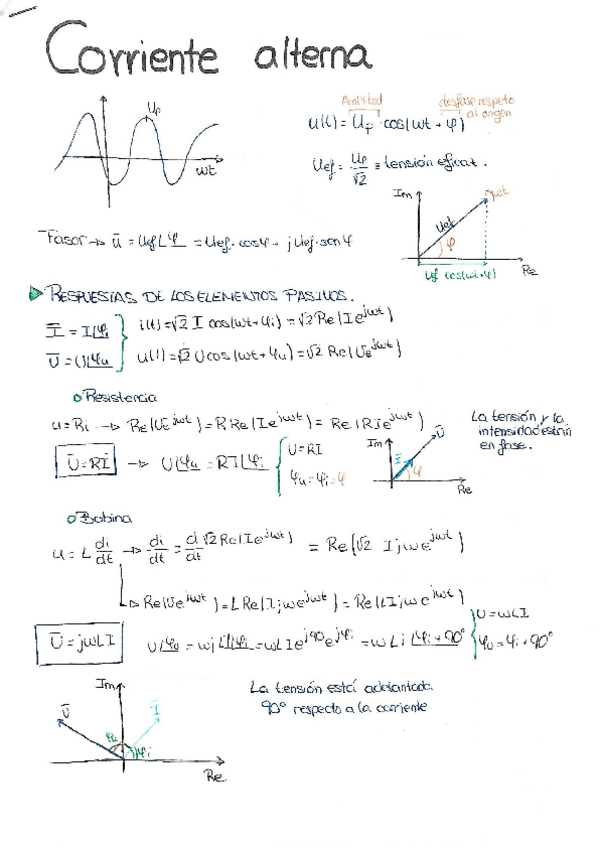 Corriente alterna
Up
wt
Amplitud
desfase respeto al origen
u(t) = Up · cos(wt + φ)
Uef = Up/√2 ≡ tensión eficaz.
Im
wt
Uef
φ
Uef cos(wt+φ)
Re
Fasor → ū = Uef∠φ = Uef · cosφ + j Uef · senφ
RESPUESTAS DE LOS ELEMENTOS PASIVOS.
Ī = I∠φi
i(t) = √2 I cos(wt+φi) = √2 Re(I e^jwt)
Ū = U∠φu
u(t) = √2 U cos(wt+φu) = √2 Re(U e^jwt)
Resistencia
u = Ri → Re(U e^jwt) = R Re(I e^jwt) = Re(RI e^jwt)
La tensión y la intensidad están en fase.
Ū = RĪ → U∠φu = RI∠φi
U = RI
φu = φi = φ
Im
Ū
Ī
φ
Re
Bobina
u = L di/dt → di/dt = d/dt √2 Re(I e^jwt) = Re(√2 I jw e^jwt)
Re(U e^jwt) = L Re(I jw e^jwt) = Re(L I jw e^jwt)
Ū = jwLI
U∠φu = wj L I∠φi = wL I e^j90 e^jφi = wL i ∠φi + 90°
U = wLI
φu = φi + 90°
Im
Ū
Ī
φu
φi
Re
La tensión está adelantada
90° respecto a la corriente